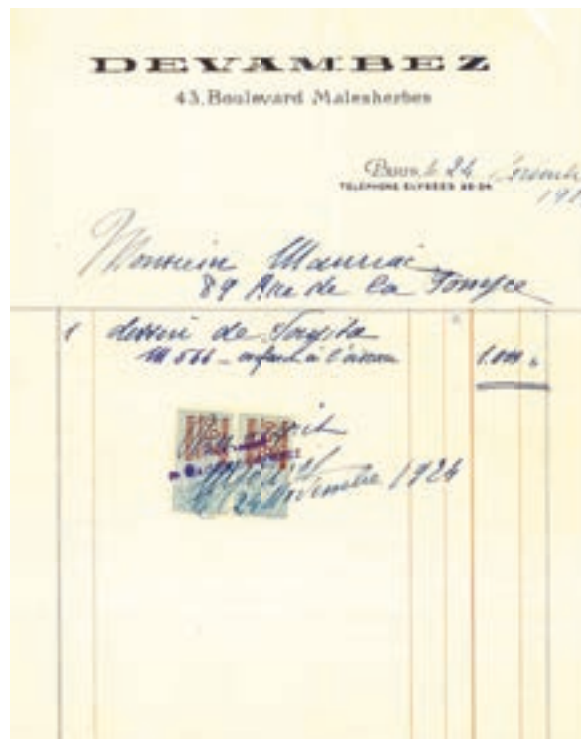 DEVAMBEZ
43, Boulevard Malesherbes
Paris, le 24
TÉLÉPHONE ELYSÉES
Monsieur Mauriac
89 Rue de la Pompe
1 dessin de Foujita
566 - enfant à l'oiseau 1.000
24 Novembre 1924